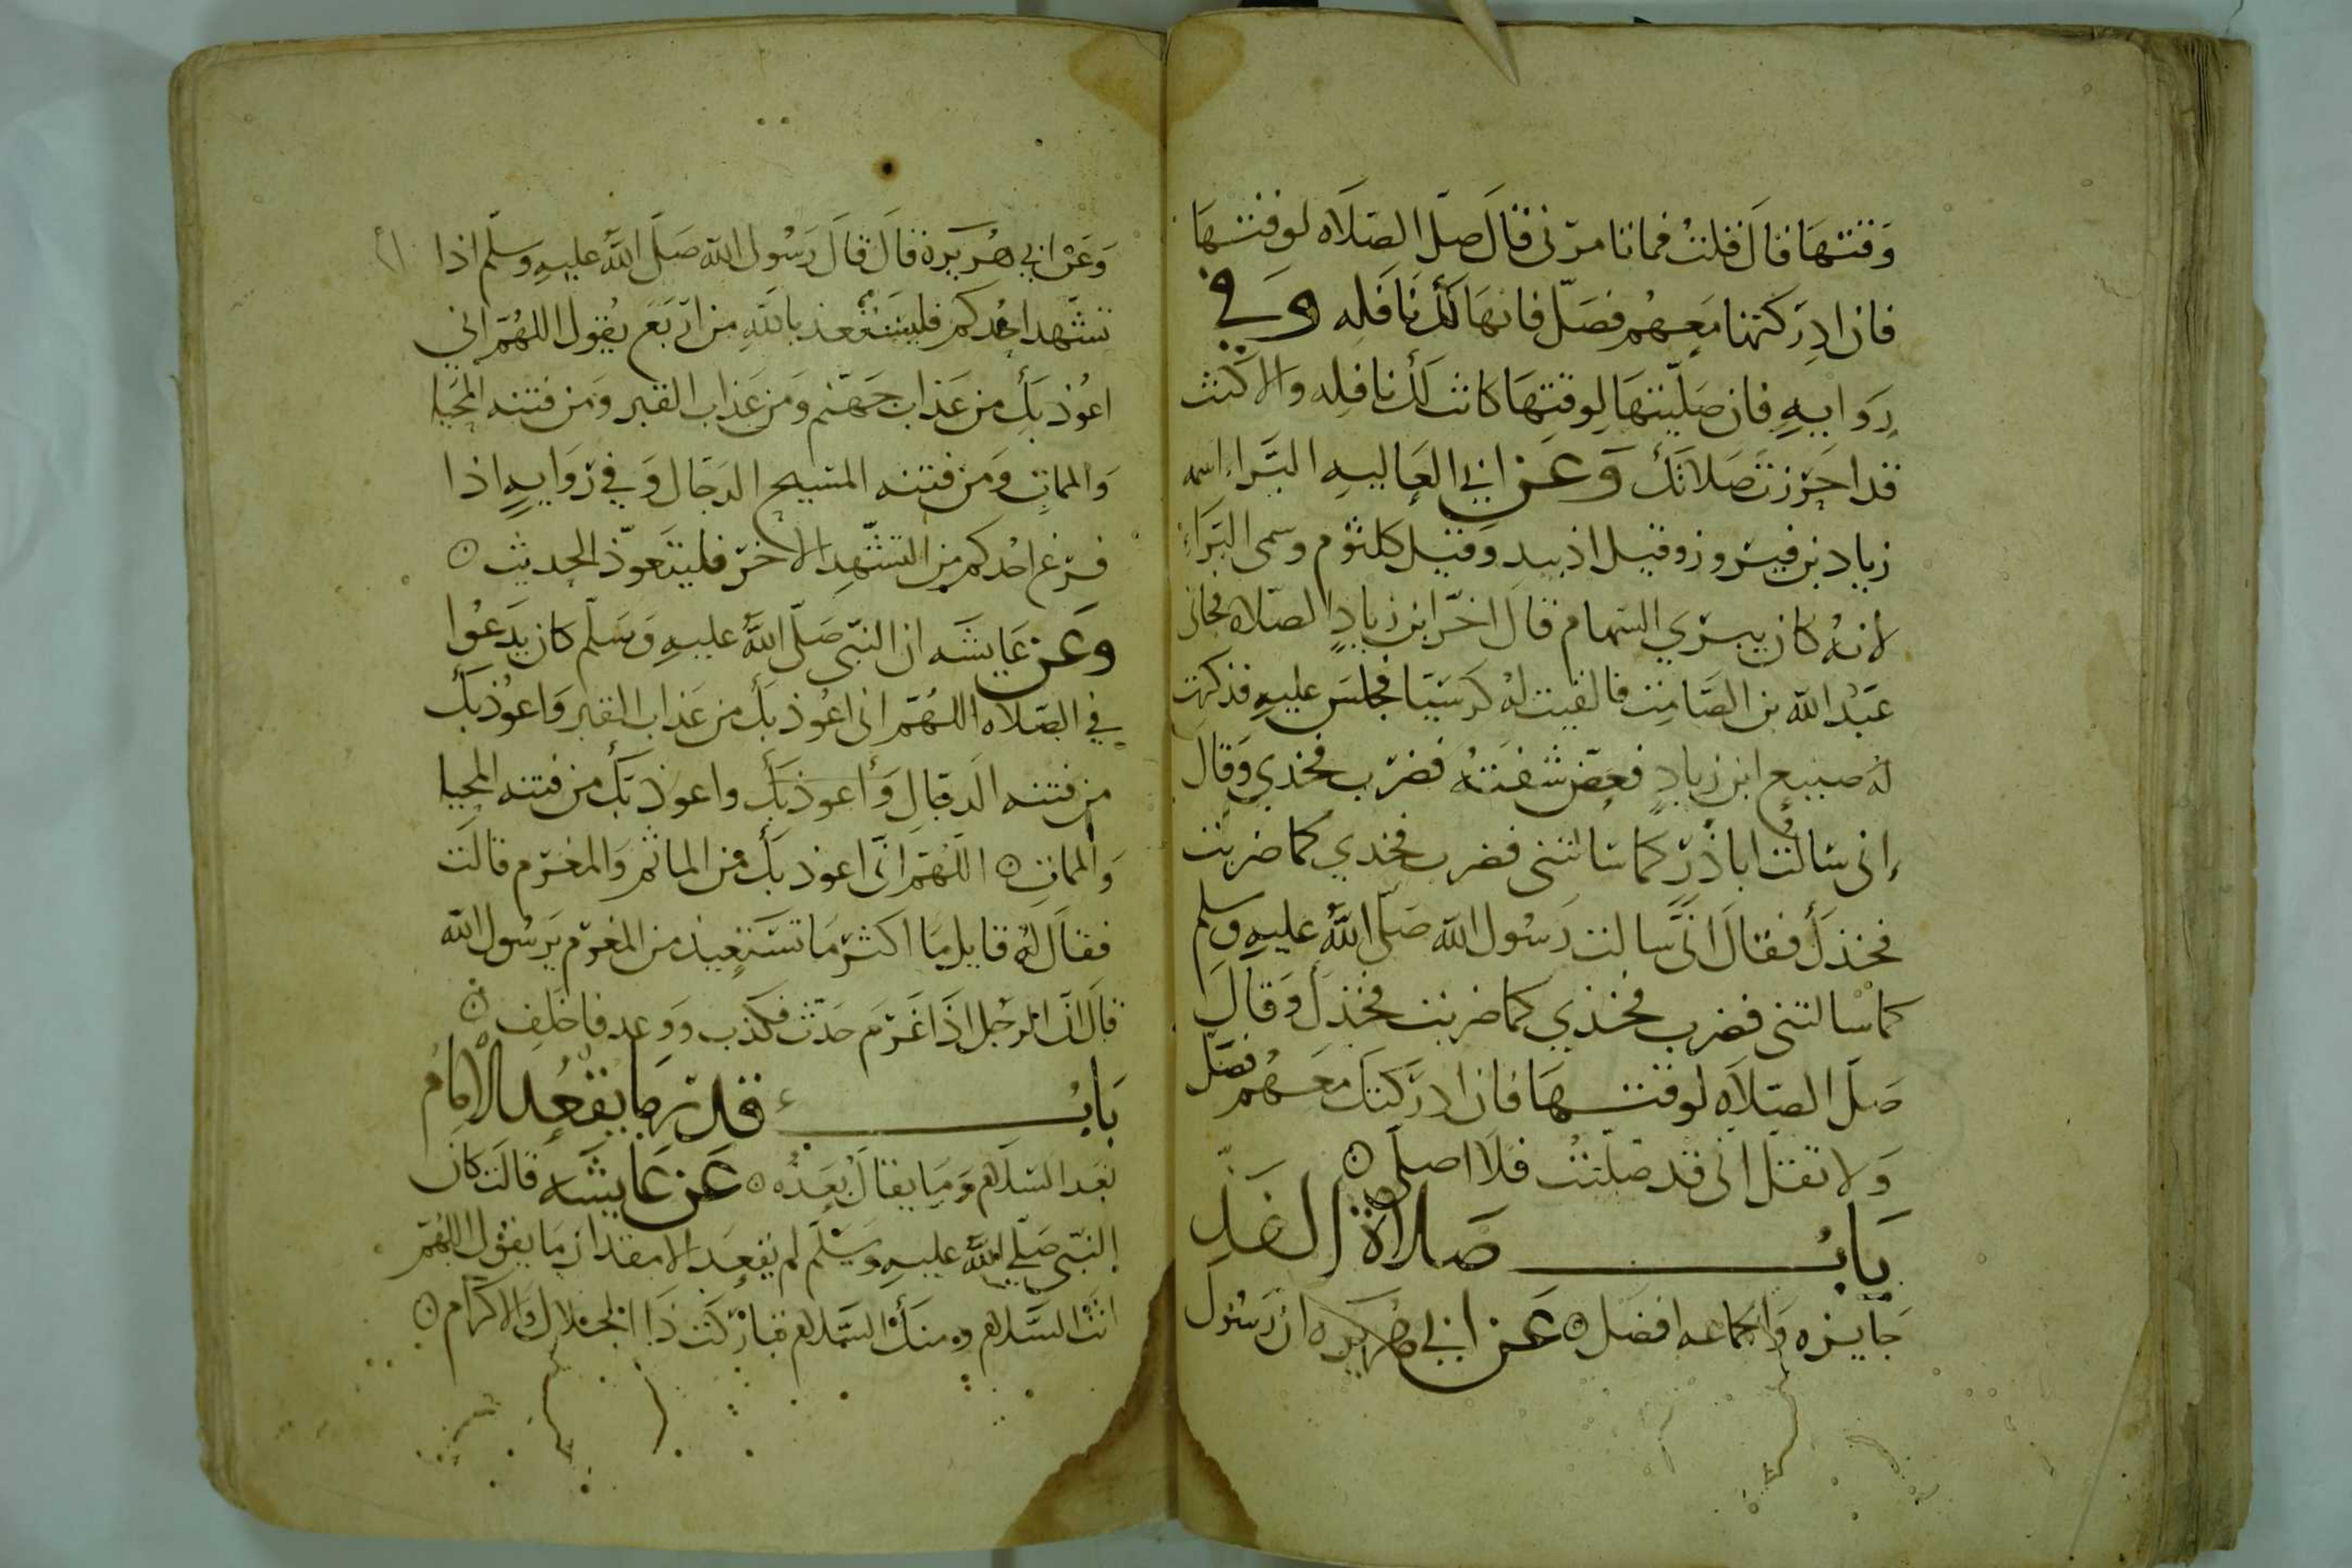 وقتها قال قلت فما تامرنى قال صل الصلاه لوقتها
فان ادركتها معهم فصل فانها لك نافله وفي
روايه فان صليتها لوقتها كانت لك نافله والا كنت
قد احرزت صلاتك وعن ابي العاليه البراء اسمه
زياد بن فيروز وقيل اذينه وقيل كلثوم وسمى البراء
لانه كان يبري السهام قال اخر ابن زياد الصلاه فجانى
عبد الله بن الصامت فالقيت له كرسيا فجلس عليه فذكرت
له صنيع ابن زياد فعض شفته فضرب فخذي وقال
إنى سالت اباذر كما سالتنى فضرب فخذي كما ضربت
فخذك فقال انى سالت رسول الله صلى الله عليه وسلم
كما سالتنى فضرب فخذي كما ضربت فخذك وقال
صل الصلاه لوقتها فان ادركتك معهم فصل
ولا تقل انى قد صليت فلا اصلى
باب صلاة الفذ
جايزه والجماعه افضل عن ابي هريره ان رسول
وعن ابي هريرة قال قال رسول الله صلى الله عليه وسلم اذا
تشهد احدكم فليستعذ بالله من اربع يقول اللهم اني
اعوذ بك من عذاب جهنم ومن عذاب القبر ومن فتنه المحيا
والممات ومن فتنه المسيح الدجال وفي روايه اذا
فرغ احدكم من التشهد الاخر فليتعوذ الحديث
وعن عايشه ان النبى صلى الله عليه وسلم كان يدعوا
في الصلاه اللهم انى اعوذ بك من عذاب القبر واعوذ بك
من فتنه الدجال وأعوذ بك واعوذ بك من فتنه المحيا
والممات اللهم انى اعوذ بك من الماثم والمغرم قالت
فقال له قايل ما اكثر ما تستعيذ من المغرم يرسول الله
قال ان الرجل اذا غرم حدث فكذب ووعد فاخلف
باب قدر ما يقعد الامام
بعد السلام وما يقال بعده عن عايشه قالت كان
النبى صلى الله عليه وسلم لم يقعد الا مقدار ما يقول اللهم
انت السلام ومنك السلام تباركت ذا الجلال والاكرام